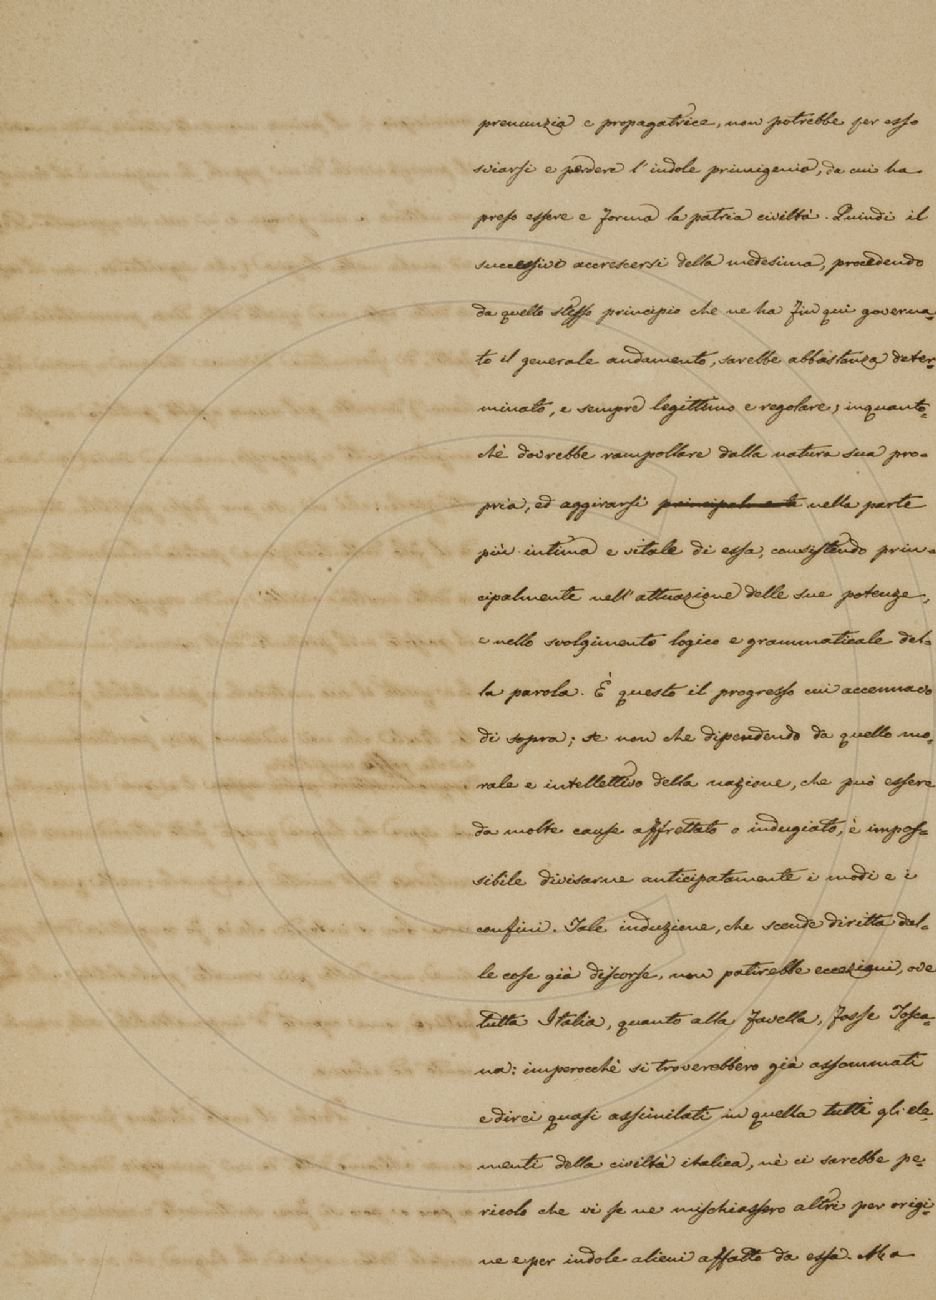 prenunzia e propagatrice, non potrebbe per esso
sviarsi e perdere l'indole primigenia, da cui ha
preso essere e forma la patria civiltà. Quindi il
successivo accrescersi della medesima, procedendo
da quello stesso principio che ne ha fin qui governa=
to il generale andamento, sarebbe abbastanza deter=
minato, e sempre legittimo e regolare; inquanto=
chè dovrebbe rampollare dalla natura sua pro=
pria, ed aggirarsi principalmente nella parte
più intima e vitale di essa, consistendo prin=
cipalmente nell'attuazione delle sue potenze,
e nello svolgimento logico e grammaticale del=
la parola. È questo il progresso cui accennavo
di sopra; se non che dipendendo da quello mo=
rale e intellettivo della nazione, che può essere
da molte cause affrettato o indugiato, è impos=
sibile divisarne anticipatamente i modi e i
confini. Tale induzione, che scende diritta dal=
le cose già discorse, non patirebbe eccezioni, ove
tutta Italia, quanto alla favella, fosse Tosca=
na: imperocchè si troverebbero già assommati
e direi quasi assimilati in quella tutti gli ele=
menti della civiltà italica, nè ci sarebbe pe=
ricolo che vi se ne mischiassero altri per origi=
ne e per indole alieni affatto da essa. Ma